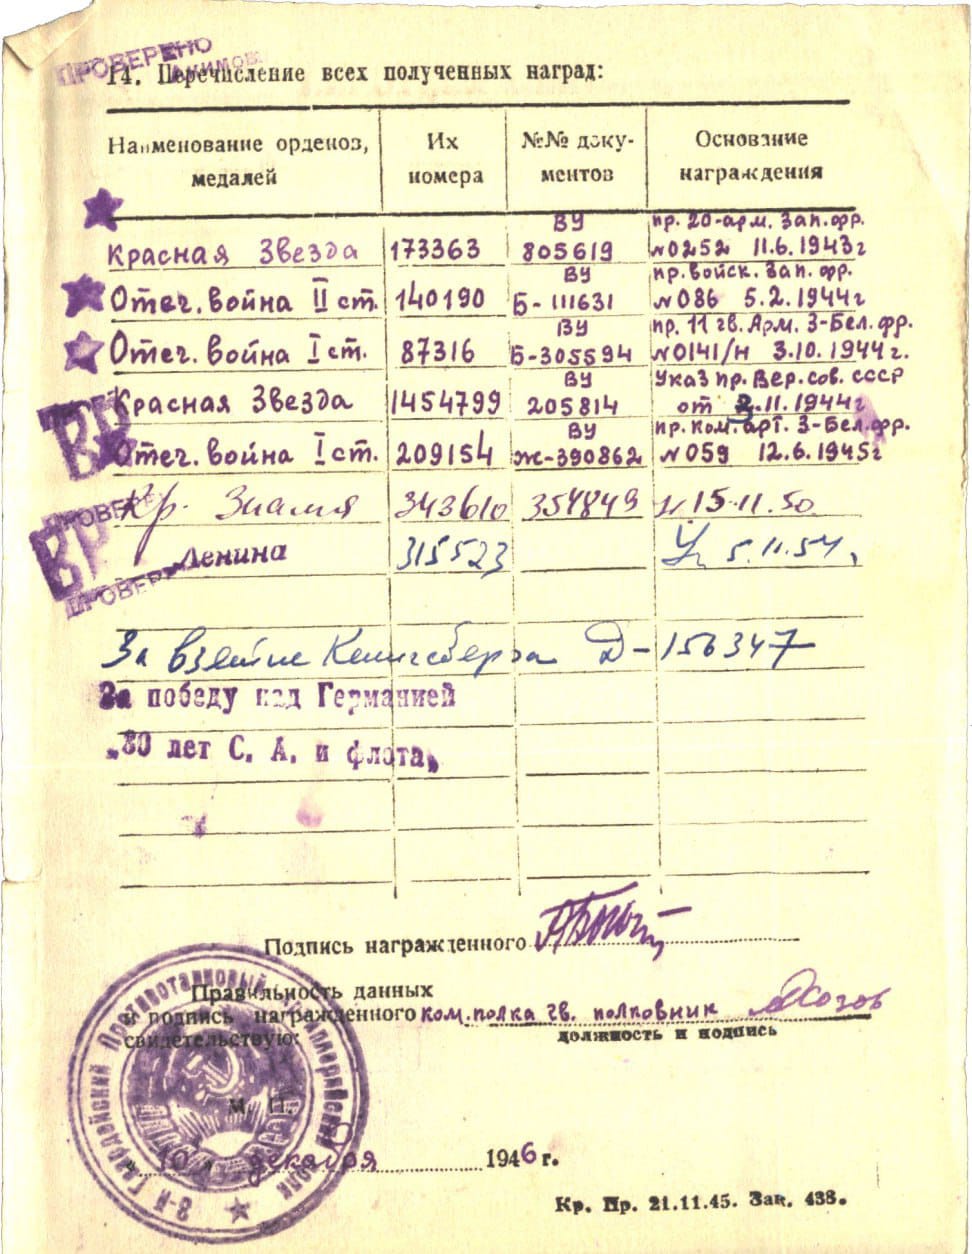 ПРОВЕРЕНО
14. Перечисление всех полученных наград:
Наименование орденов, медалей Их номера №№ документов Основание награждения
Красная Звезда 173363 ВУ 805619 пр. 20-арм. Зап. фр. №0252 11.6.1943г
Отеч. война II ст. 140190 ВУ Б-111631 пр. войск. Зап. фр. №086 5.2.1944г
Отеч. война I ст. 87316 ВУ Б-305594 пр. 11 гв. Арм. 3-Бел. фр. №0141/н 3.10.1944г.
Красная Звезда 1454799 ВУ 205814 Указ пр. Вер. сов. СССР от 3.11.1944г
Отеч. война I ст. 209154 ВУ Ж-390862 пр. Ком. арт. 3-Бел. фр. №059 12.6.1945г
ВР
Кр. Знамя 343610 354849 15.11.50
ПРОВЕРЕ
Ленина 315523 У 5.11.54г.
ВР
ПРОВЕР
За взятие Кенигсберга Д-156347
За победу над Германией
„30 лет С. А. и флота„
Подпись награжденного
Правильность данных
и подпись награжденного ком. полка гв. полковник
свидетельствую:
должность и подпись
М. П.
3-й Гвардейский Противотанковый Артиллерийский полк
„10„ декабря 1946 г.
Кр. Пр. 21.11.45. Зак. 438.